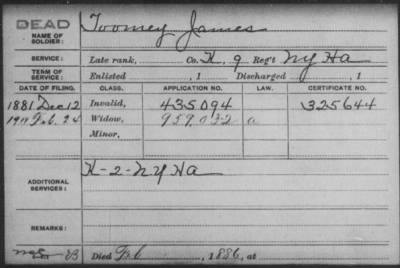 DEAD
NAME OF SOLDIER: Toomey James
SERVICE: Late rank, Co. K, 9 Reg't N Y H a
TERM OF SERVICE: Enlisted , 1 Discharged , 1
DATE OF FILING. CLASS. APPLICATION NO. LAW. CERTIFICATE NO.
1881 Dec 12 Invalid, 435094 325644
1911 Feb. 24 Widow, 959,032 a
Minor,
ADDITIONAL SERVICES: K-2-N Y H a
REMARKS:
Died Feb , 1886, at